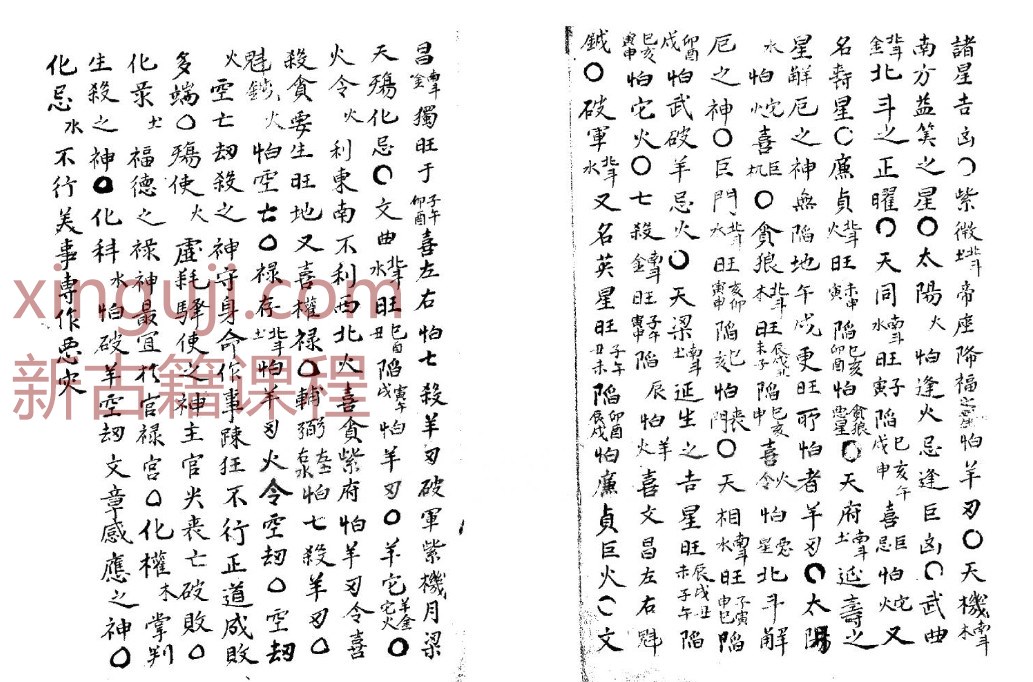 諸星吉凶○紫微北斗土帝座降福之星怕羊刃○天機南斗木
南方益筭之星○太陽火怕逢火忌逢巨凶○武曲
北斗金北斗之正曜○天同水南斗旺寅子陷戌申巳亥午喜忌巨怕火陀又
名壽星○廉貞火北斗旺寅未申陷卯酉巳亥怕惡星貪狼○天府土南斗延壽之
星解厄之神無陷地午戌更旺所怕者羊刃○太陽
水怕火陀喜机巨○貪狼木北斗旺未子辰戌丑陷申巳亥喜令火怕星惡北斗解
厄之神○巨門水北斗旺寅申亥卯陷亥巳怕門喪○天相水南斗旺申巳子寅陷
戌卯酉怕武破羊忌火○天梁土南斗延生之吉星旺未子午辰戌丑陷
寅申巳亥怕陀火○七殺金南斗旺寅申子午陷辰怕火羊喜文昌左右魁
鉞○破軍水北斗又名英星旺丑未子午陷辰戌卯酉怕廉貞巨火○文
昌金南斗獨旺于卯酉子午喜左右怕七殺羊刃破軍紫機月梁
天殤化忌○文曲水北斗旺丑巳酉陷戌寅午怕羊刃○羊陀羊金陀火○
火令火利東南不利西北火喜貪紫府怕羊刃令喜
殺貪要生旺地又喜權祿○輔弼左土右水怕七殺羊刃○
魁鉞火怕空亡○祿存土北斗怕羊刃火令空刼○空刼
火空亡刼殺之神守身命作事疎狂不行正道成敗
多端○殤使火虛耗驛使之神主官災喪亡破敗○
化录土福德之祿神最宜於官祿宮○化權木掌判
生殺之神○化科水怕破羊空刼文章感應之神○
化忌水不行美事專作惡灾
xinguji.com
新古籍课程